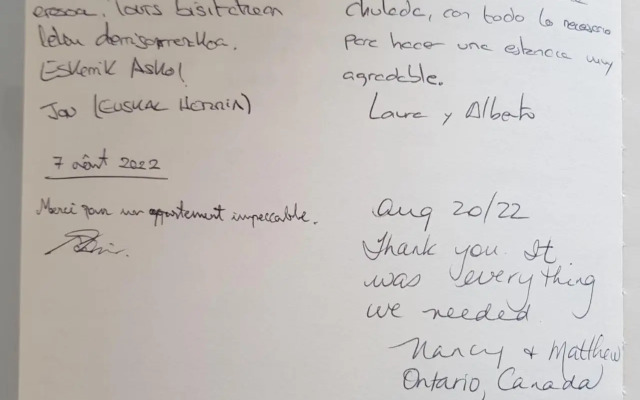 erosoa, laurs bisitatzean
leku
Eskerrik Asko!
Jon (Euskal Herria)
7 août 2022
Merci pour un appartement impeccable.
chulada, con todo lo necesario
para hacer una estancia muy
agradable.
Laura y Alberto
Aug 20/22
Thank you. It
was everything
we needed
Nancy & Matthew
Ontario, Canada